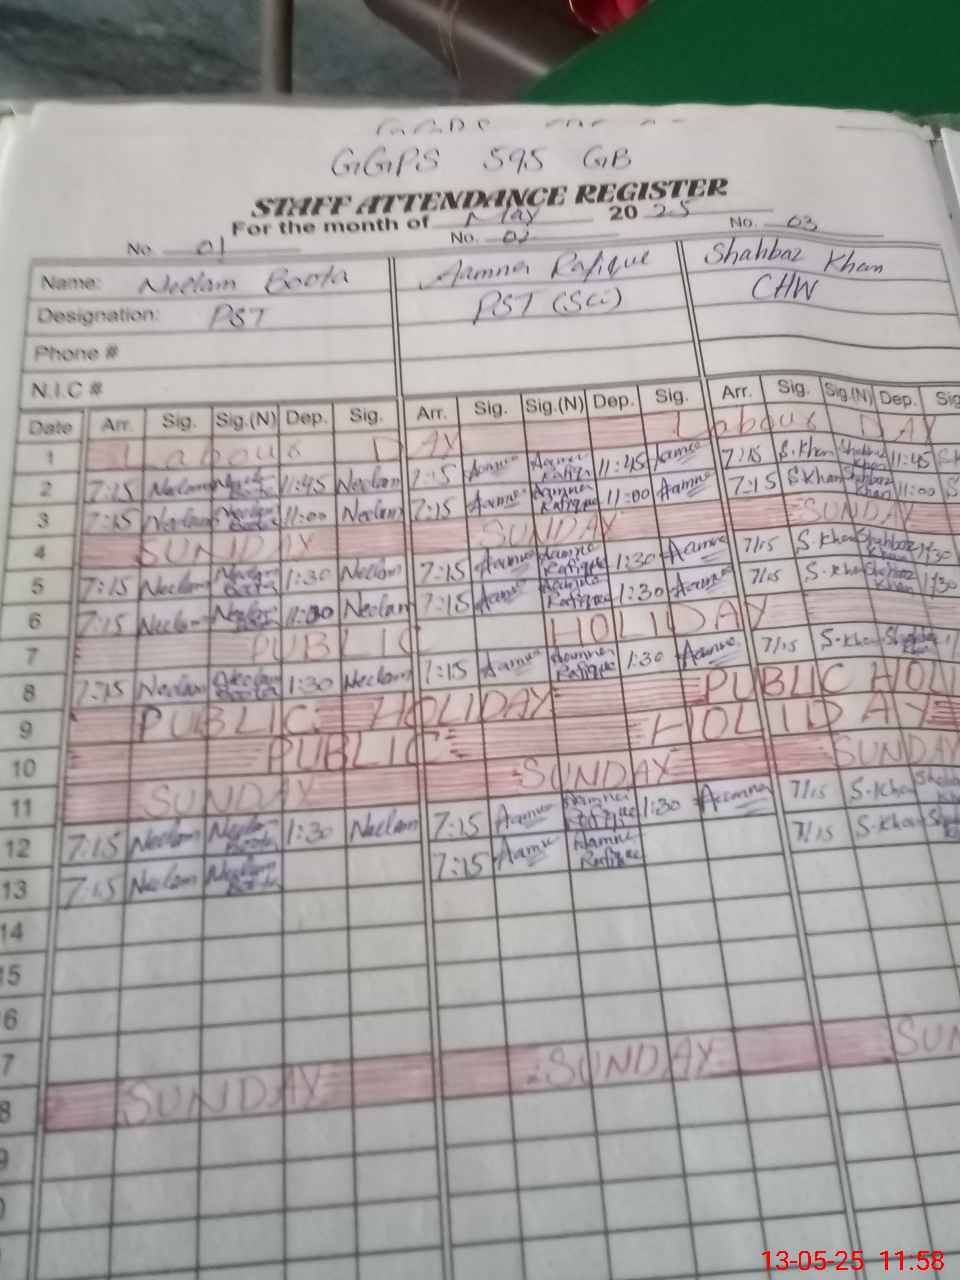 GGPS 595 GB
STAFF ATTENDANCE REGISTER
For the month of May 2025
No. 01 No. 02 No. 03
Name: Neelam Boota Aamna Rafique Shahbaz Khan
Designation: PST PST (Sci) CHW
Phone #
N.I.C #
Date Arr. Sig. Sig.(N) Dep. Sig. Arr. Sig. Sig.(N) Dep. Sig. Arr. Sig. Sig.(N) Dep. Sig
1 Labour DAY Labour DAY
2 7:15 Neelam Neelam Boota 11:45 Neelam 7:15 Aamna Aamna Rafique 11:45 Aamna 7:15 S.Khan Shahbaz Khan 11:45
3 7:15 Neelam Neelam Boota 11:00 Neelam 7:15 Aamna Aamna Rafique 11:00 Aamna 7:15 S Khan Shahbaz Khan 11:00 S
4 SUNDAY SUNDAY SUNDAY
5 7:15 Neelam Neelam Boota 1:30 Neelam 7:15 Aamna Aamna Rafique 1:30 Aamna 7/15 S.Khan Shahbaz Khan 1/30
6 7:15 Neelam Neelam Boota Neelam 7:15 Aamna Aamna Rafique 1:30 Aamna 7/15 S.Khan Shahbaz Khan 1/30
7 PUBLIC HOLIDAY
8 7:15 Neelam Neelam Boota 1:30 Neelam 7:15 Aamna Aamna Rafique 1:30 Aamna 7/15 S.Khan Shahbaz Khan
9 PUBLIC HOLIDAY PUBLIC HOLI
10 PUBLIC HOLIDAY
11 SUNDAY SUNDAY SUNDAY
12 7:15 Neelam Neelam Boota 1:30 Neelam 7:15 Aamna Aamna Rafique 1:30 Aamna 7/15 S.Khan
13 7:15 Neelam Neelam Boota 7:15 Aamna Aamna Rafique 7/15 S.Khan
14
5
6
7
8 SUNDAY SUNDAY SUN
9
0
13-05-25 11:58